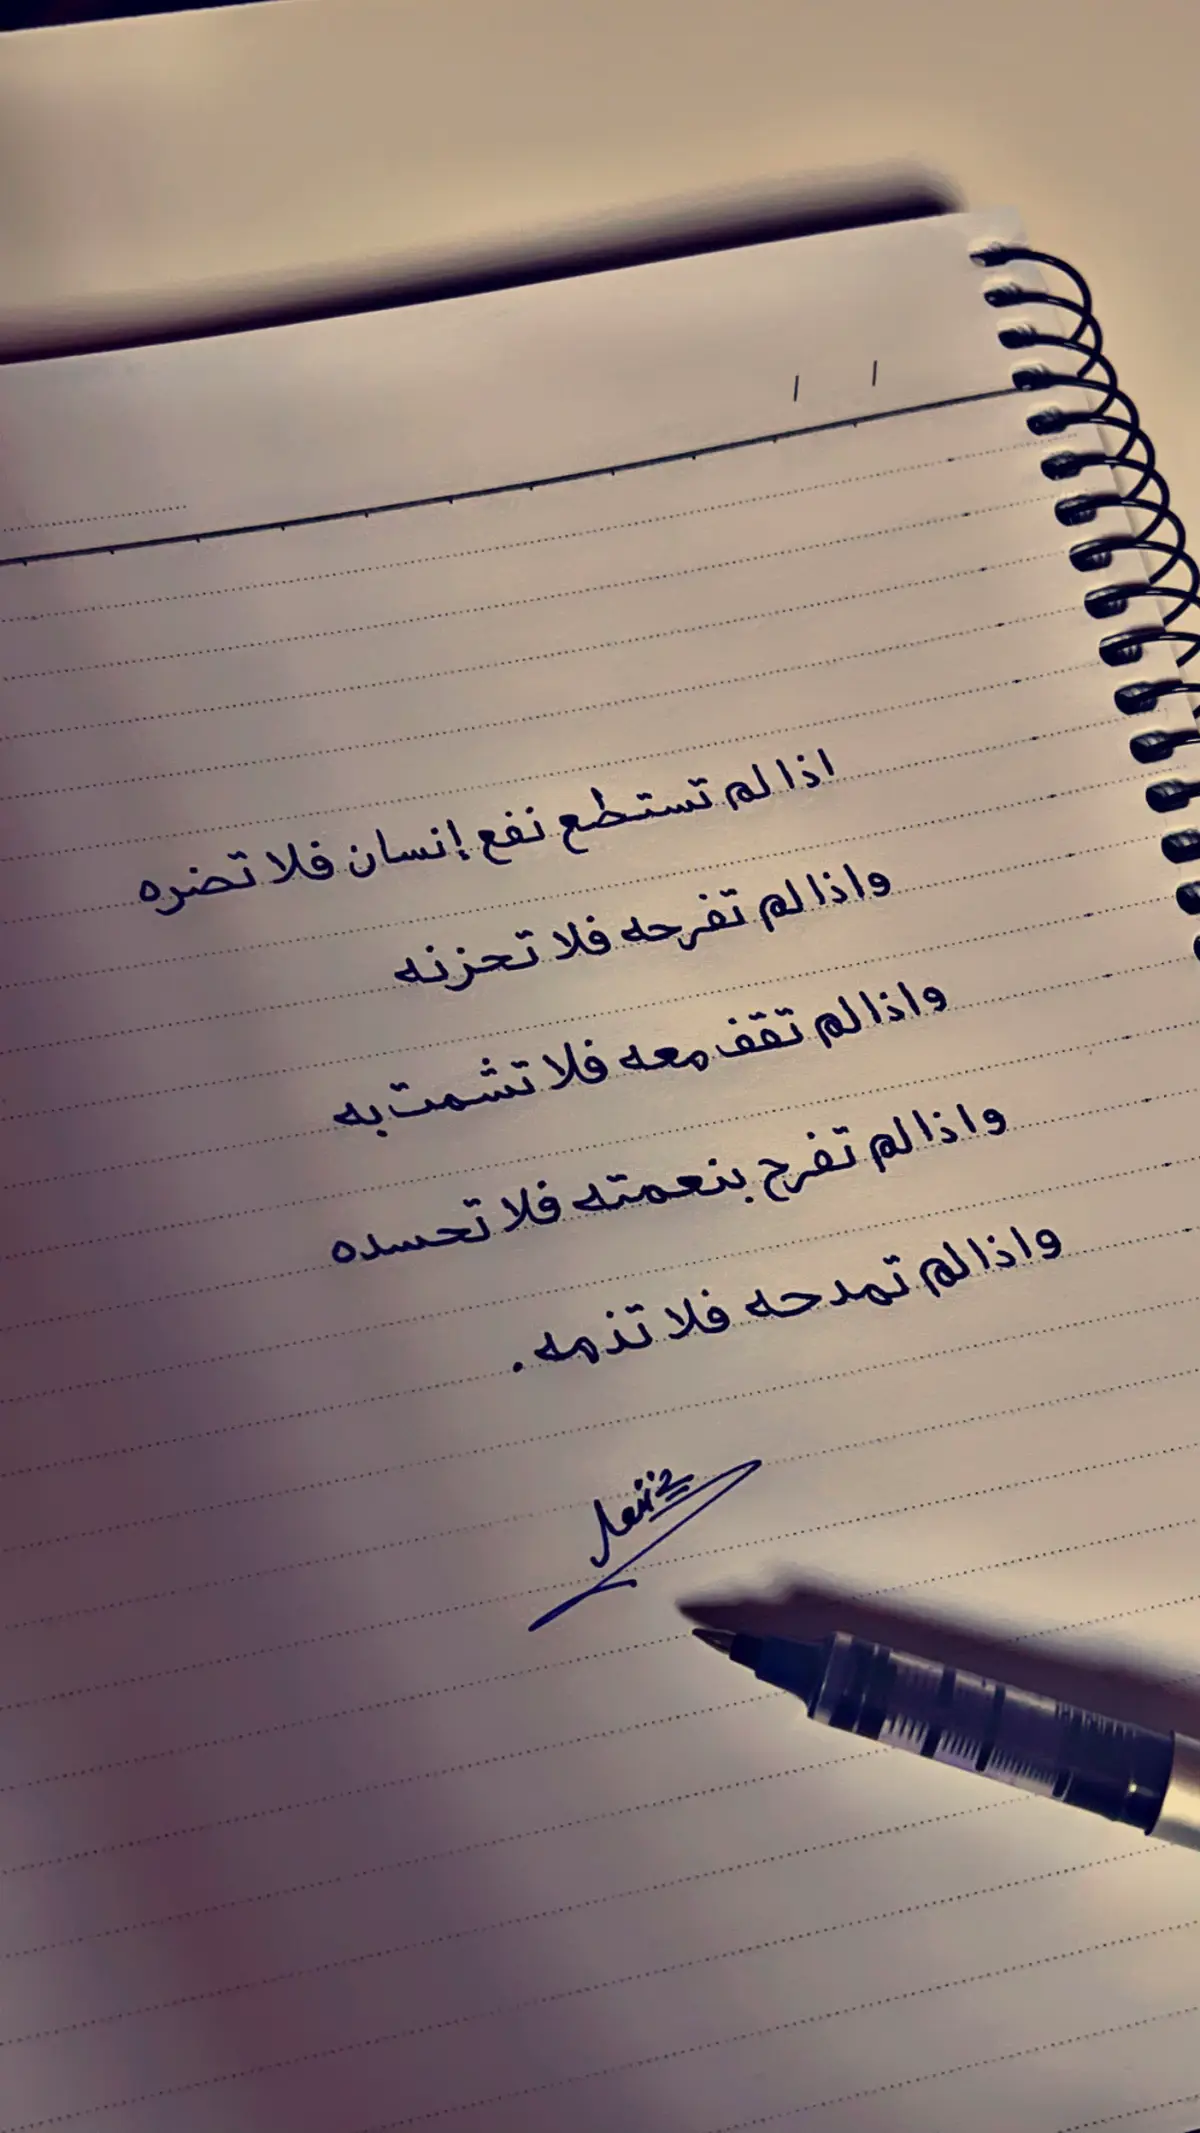 اذا لم تستطع نفع إنسان فلا تضره
واذا لم تفرحه فلا تحزنه
واذا لم تقف معه فلا تشمت به
واذا لم تفرح بنعمته فلا تحسده
واذا لم تمدحه فلا تذمه .